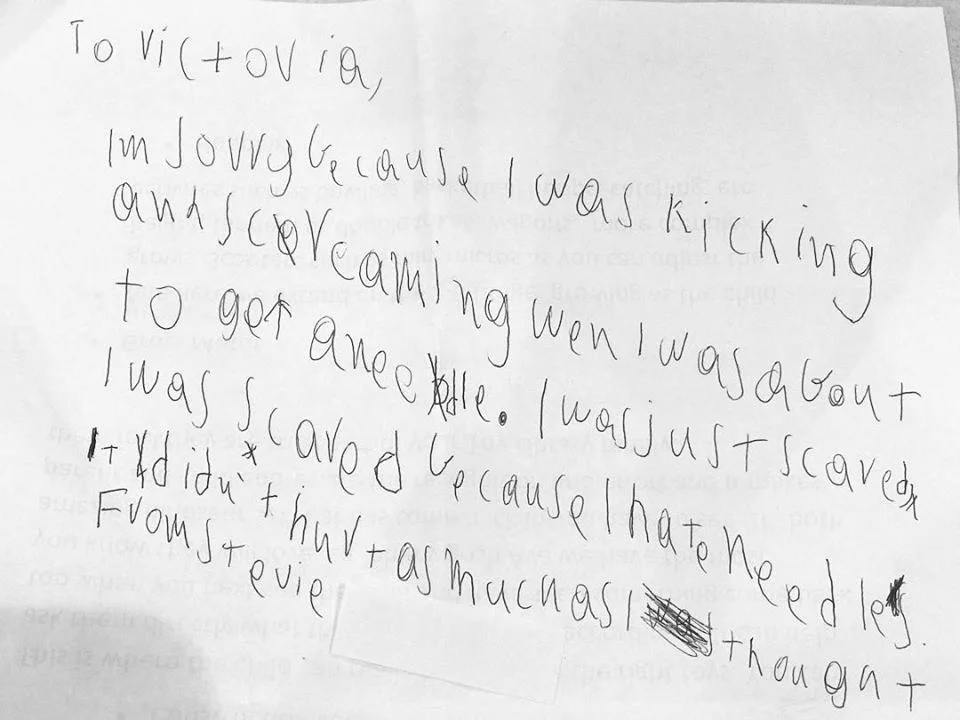 To Victoria,
Im Sorry because I was kicking
and screaming wen I was about
to get a needle. I was just scared
I was scared because I hate needles.
It didn't hurt as much as I thought
From Stevie